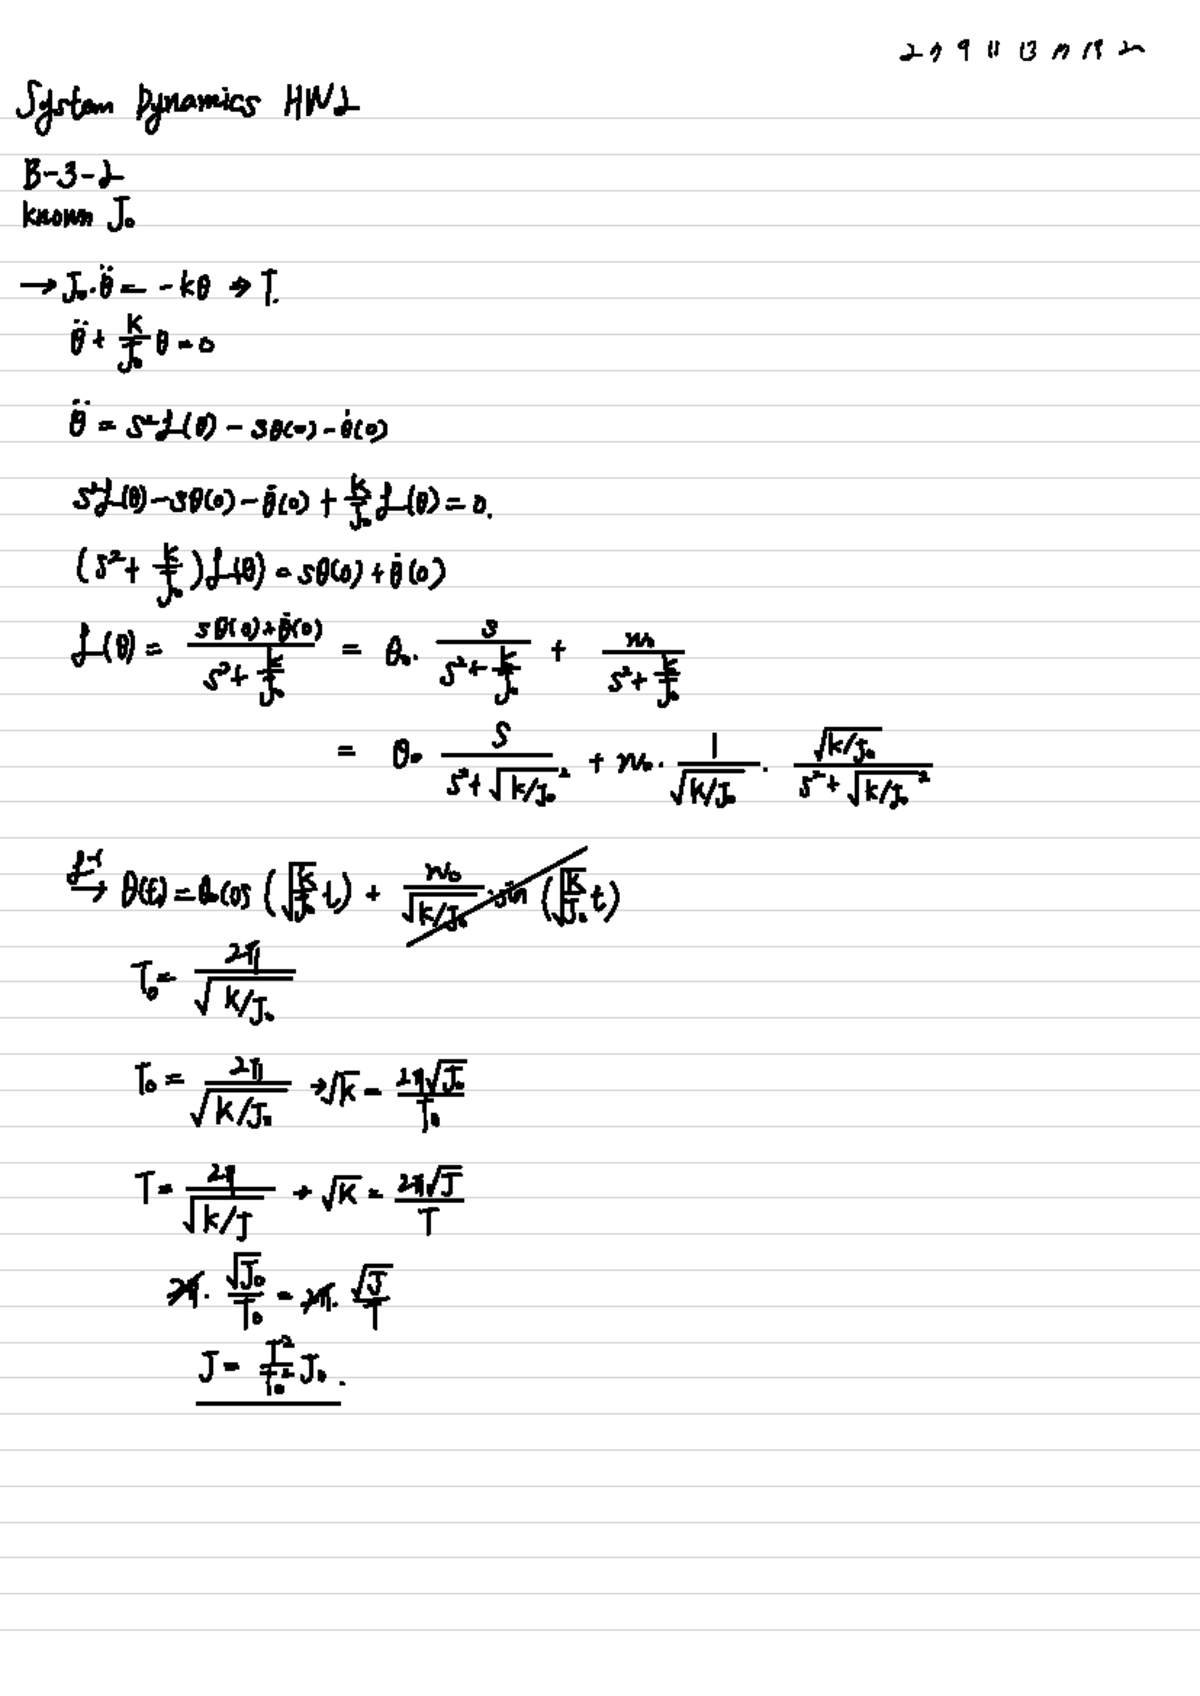 2 7 9 11 13 17 18 20
System Dynamics HW2
B-3-2
known J₀
→ J₀·θ̈ = -kθ ⇒ T.
θ̈ + k/J₀ θ = 0
θ̈ = s²ℒ(θ) - sθ(0) - θ̇(0)
s²ℒ(θ) - sθ(0) - θ̇(0) + k/J₀ ℒ(θ) = 0.
(s² + k/J₀)ℒ(θ) = sθ(0) + θ̇(0)
ℒ(θ) = (sθ(0) + θ̇(0))/(s² + k/J₀) = θ₀· s/(s² + k/J₀) + w₀/(s² + k/J₀)
= θ₀ s/(s² + √(k/J₀)²) + w₀· 1/√(k/J₀) · √(k/J₀)/(s² + √(k/J₀)²)
ℒ⁻¹→ θ(t) = θ₀cos(√(k/J₀) t) + w₀/√(k/J₀) · sin(√(k/J₀) t)
T₀ = 2π/√(k/J₀)
T₀ = 2π/√(k/J₀) → √k = 2π√J₀/T₀
T = 2π/√(k/J) → √k = 2π√J/T
2π· √J₀/T₀ = 2π· √J/T
J = T²/T₀² J₀.